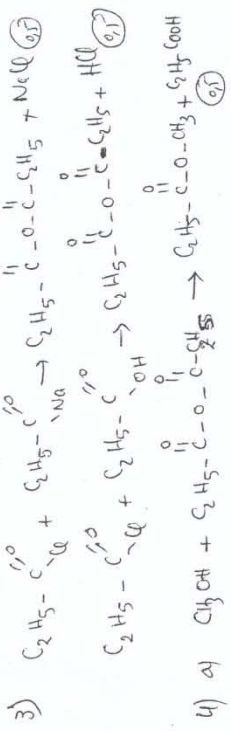 3) C₂H₅ - C(=O)-Cl + C₂H₅ - C(=O)-Na → C₂H₅ - C(=O) - O - C(=O) - C₂H₅ + NaCl (0,5)
C₂H₅ - C(=O)-Cl + C₂H₅ - C(=O)-OH → C₂H₅ - C(=O) - O - C(=O) - C₂H₅ + HCl (0,5)
4) a) CH₃OH + C₂H₅ - C(=O) - O - C(=O) - C₂H₅ → C₂H₅ - C(=O) - O - CH₃ + C₂H₅COOH (0,5)